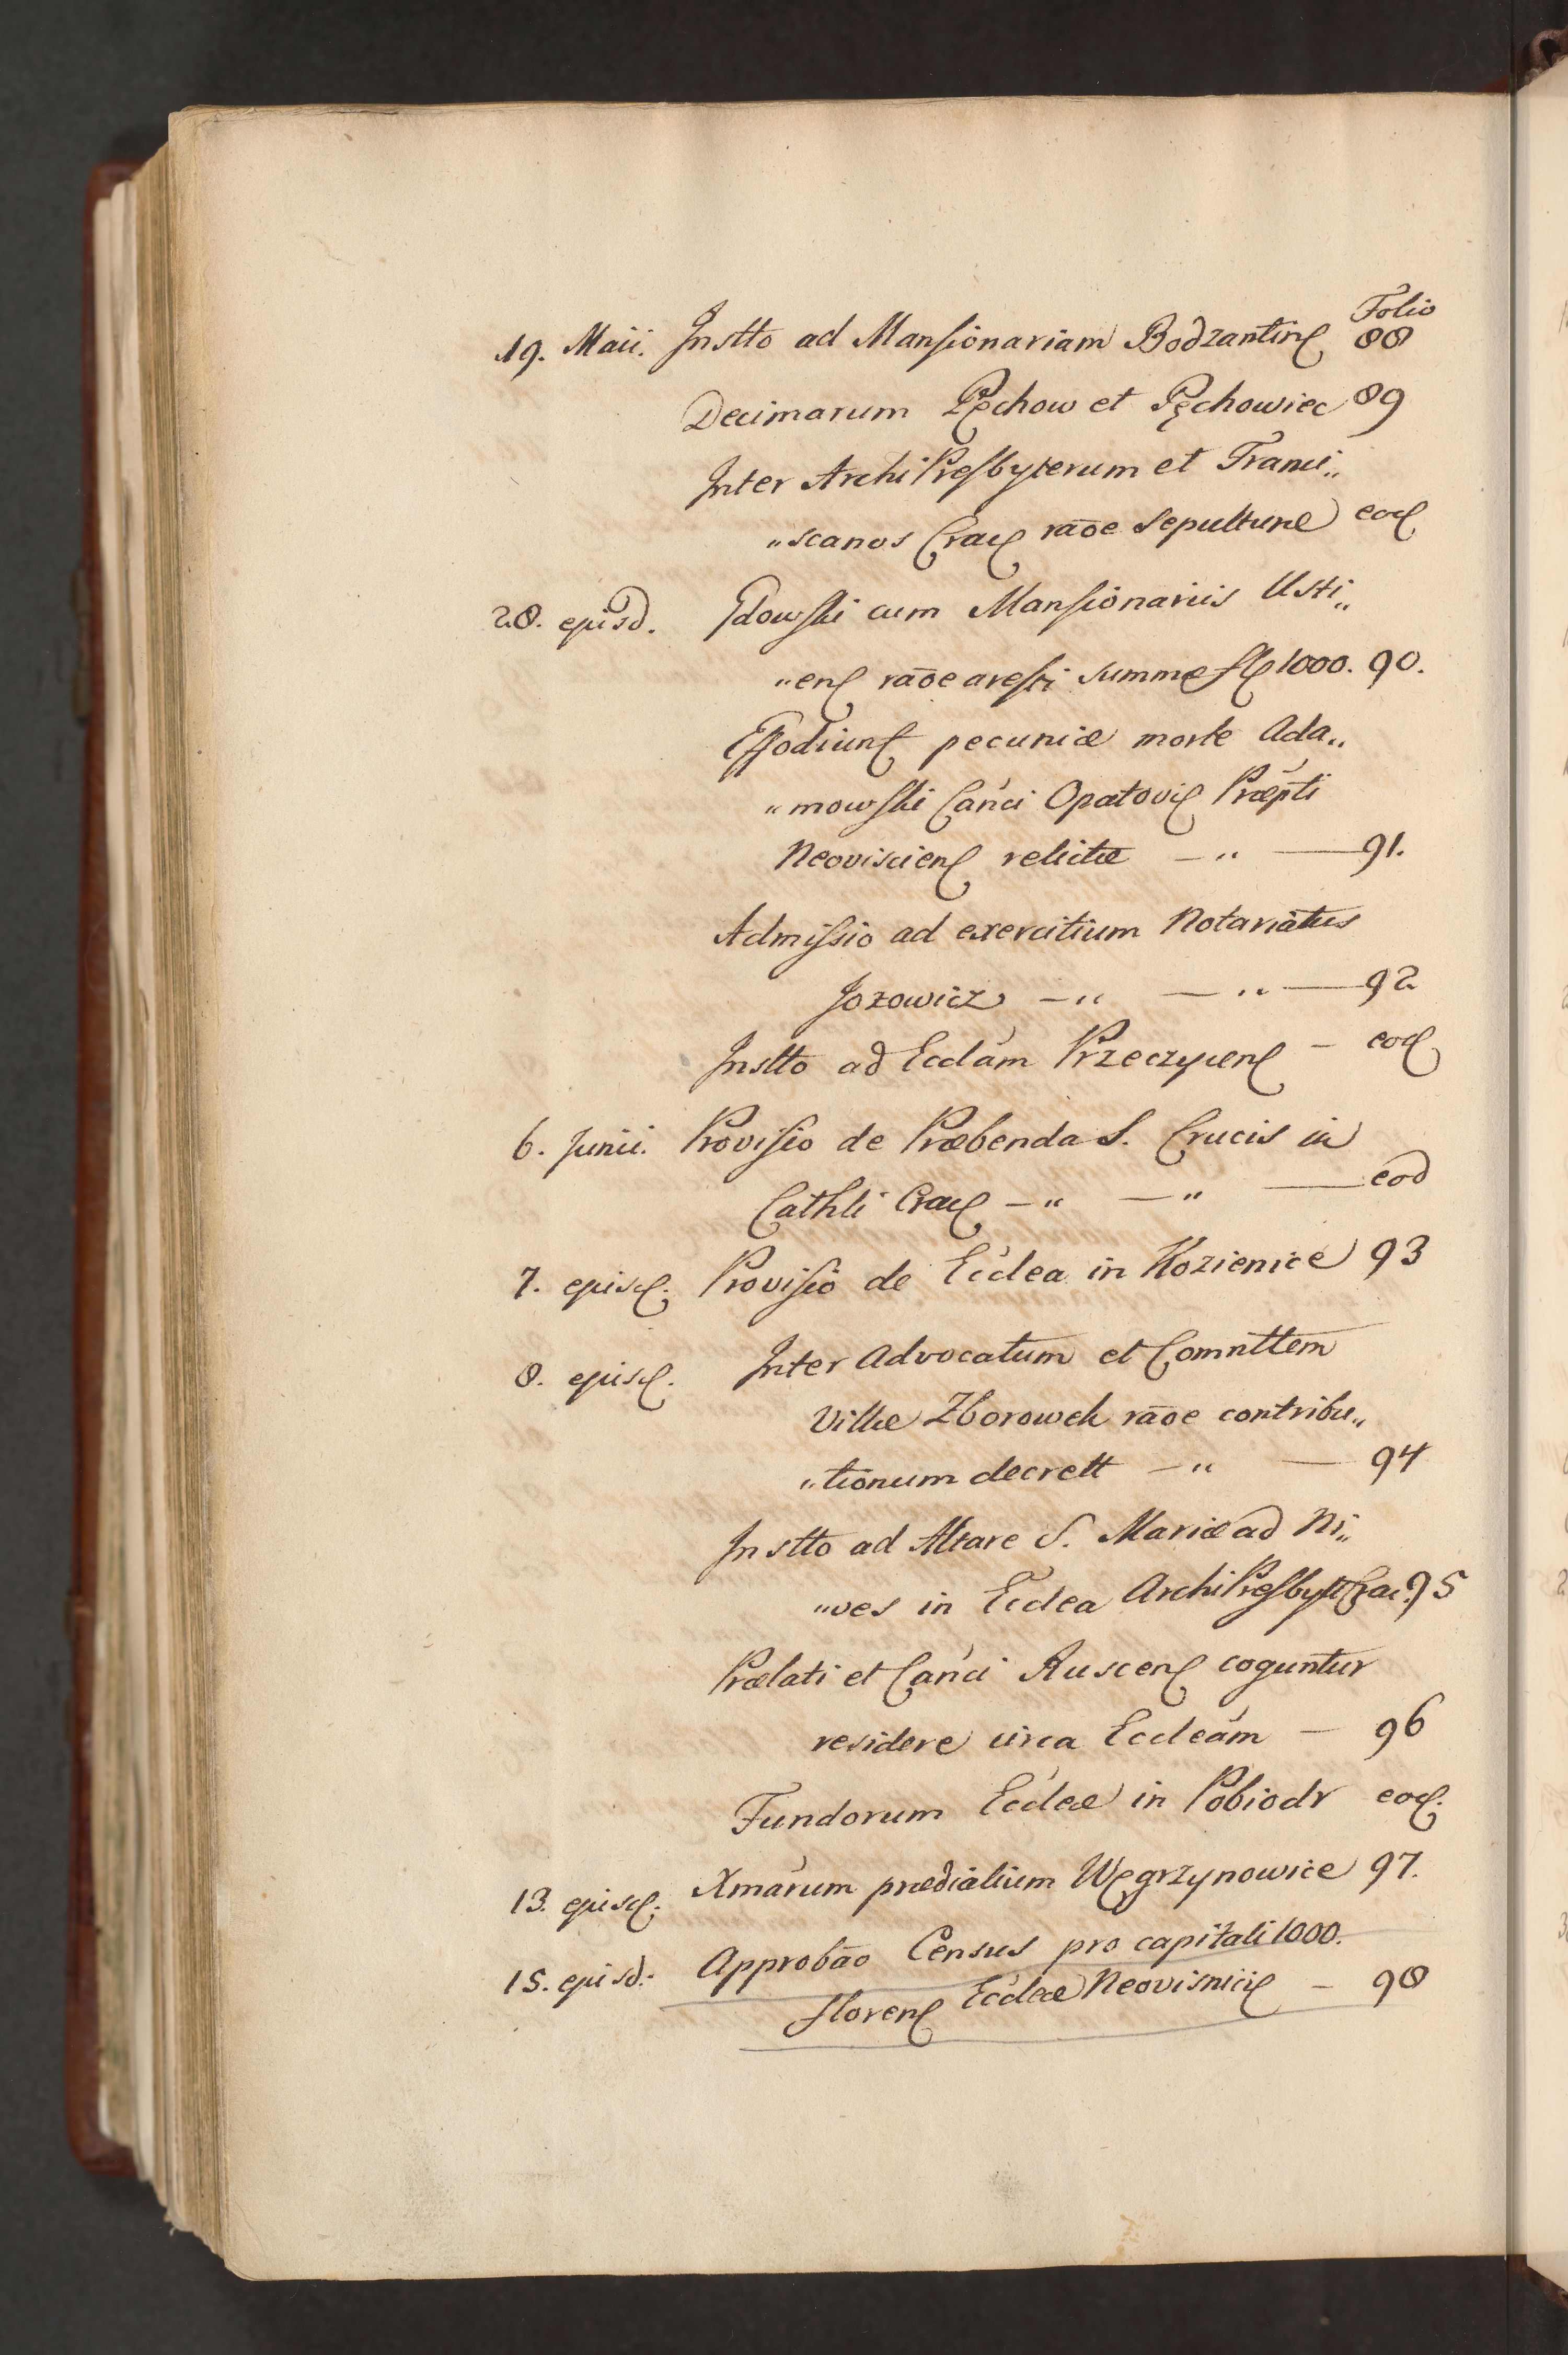 Folio
19. Maii. Instto ad Mansionariam Bodzantin 88
Decimarum Pęchow et Pęchowiec 89
Inter ArchiPresbyterum et Franci„
„scanos Crac rāoe sepulturæ eod
28. ejusd. Gdowski cum Mansionariis Usti„
„en rāoe aresti summę fl 1000. 90.
Effodiun pecuniæ morte Ada„
„mowski Canci Opatovi Præpti
Neoviscien relictæ — „ — 91.
Admissio ad exercitium Notariatus
Jozowicz — „ — „ — 92
Instto ad Ecclam Przeczycen — eod
6. Junii. Provisio de Præbenda S. Crucis in
Cathli Crac — „ — „ — eod
7. ejusd. Provisio de Ecclea in Kozienice 93
8. ejusd. Inter Advocatum et Comnttem
Villæ Zborowek rāoe contribu„
„tionum decrett — „ — 94
Instto ad Altare S. Mariæ ad Ni„
„ves in Ecclea ArchiPresbytl Crac. 95
Prælati et Canci Ruscen coguntur
residere circa Eccleam — 96
Fundorum Eccleæ in Pobiedr eod.
13. ejusd. Xmarum prædialium Węgrzynowice 97.
15. ejusd. Approbāo Census pro capitali 1000.
floren Eccleæ Neovisnici — 98